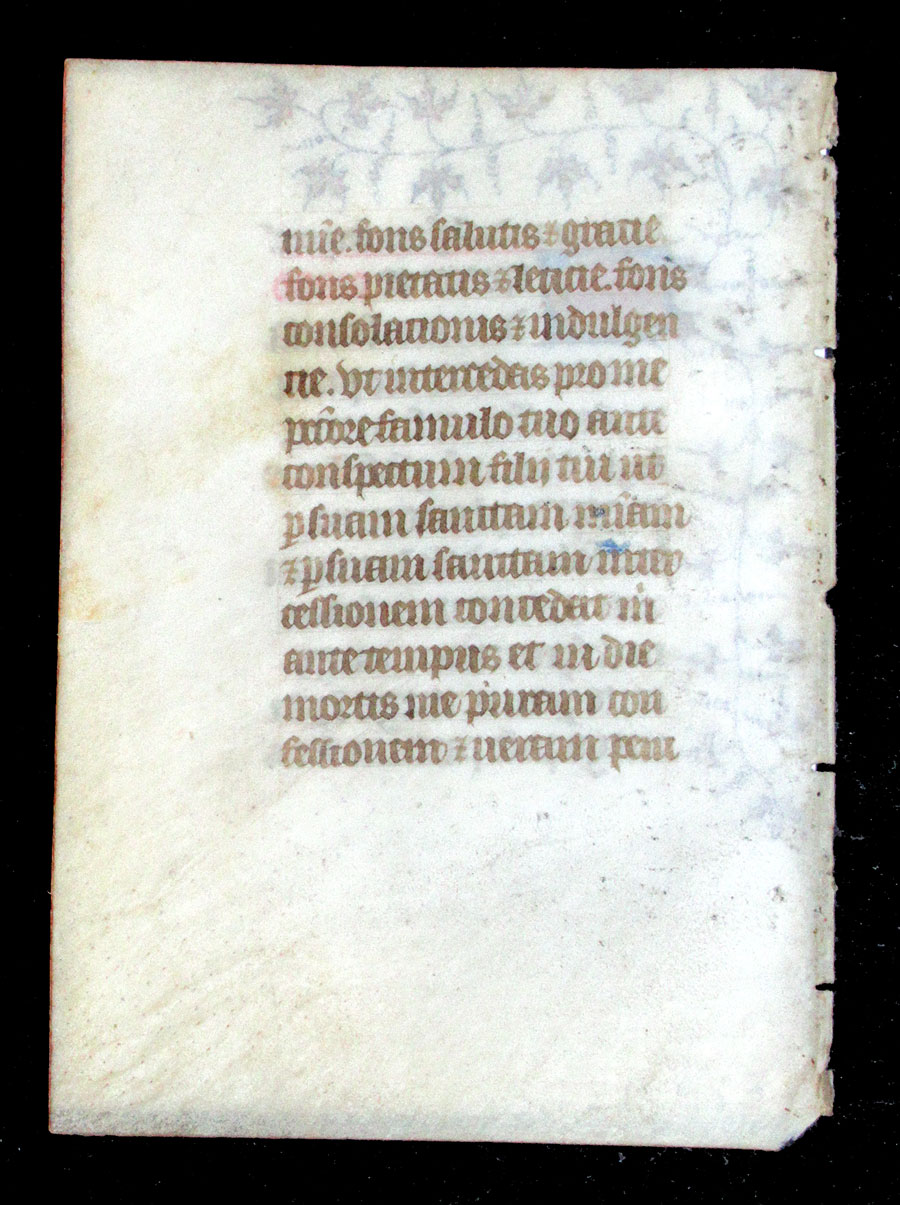 mīe. fons salutis ⁊ gracie.
fons pietatis ⁊ leticie. fons
consolacionis ⁊ indulgen
cie. Vt intercedas pro me
pctōre famulo tuo ante
conspectum filij tui ut
ꝑ suam sanctam mīam
⁊ ꝑ suam sanctam inter
cessionem concedat m̄
ante tempus et in die
mortis me puram con
fessionem ⁊ ueram peni